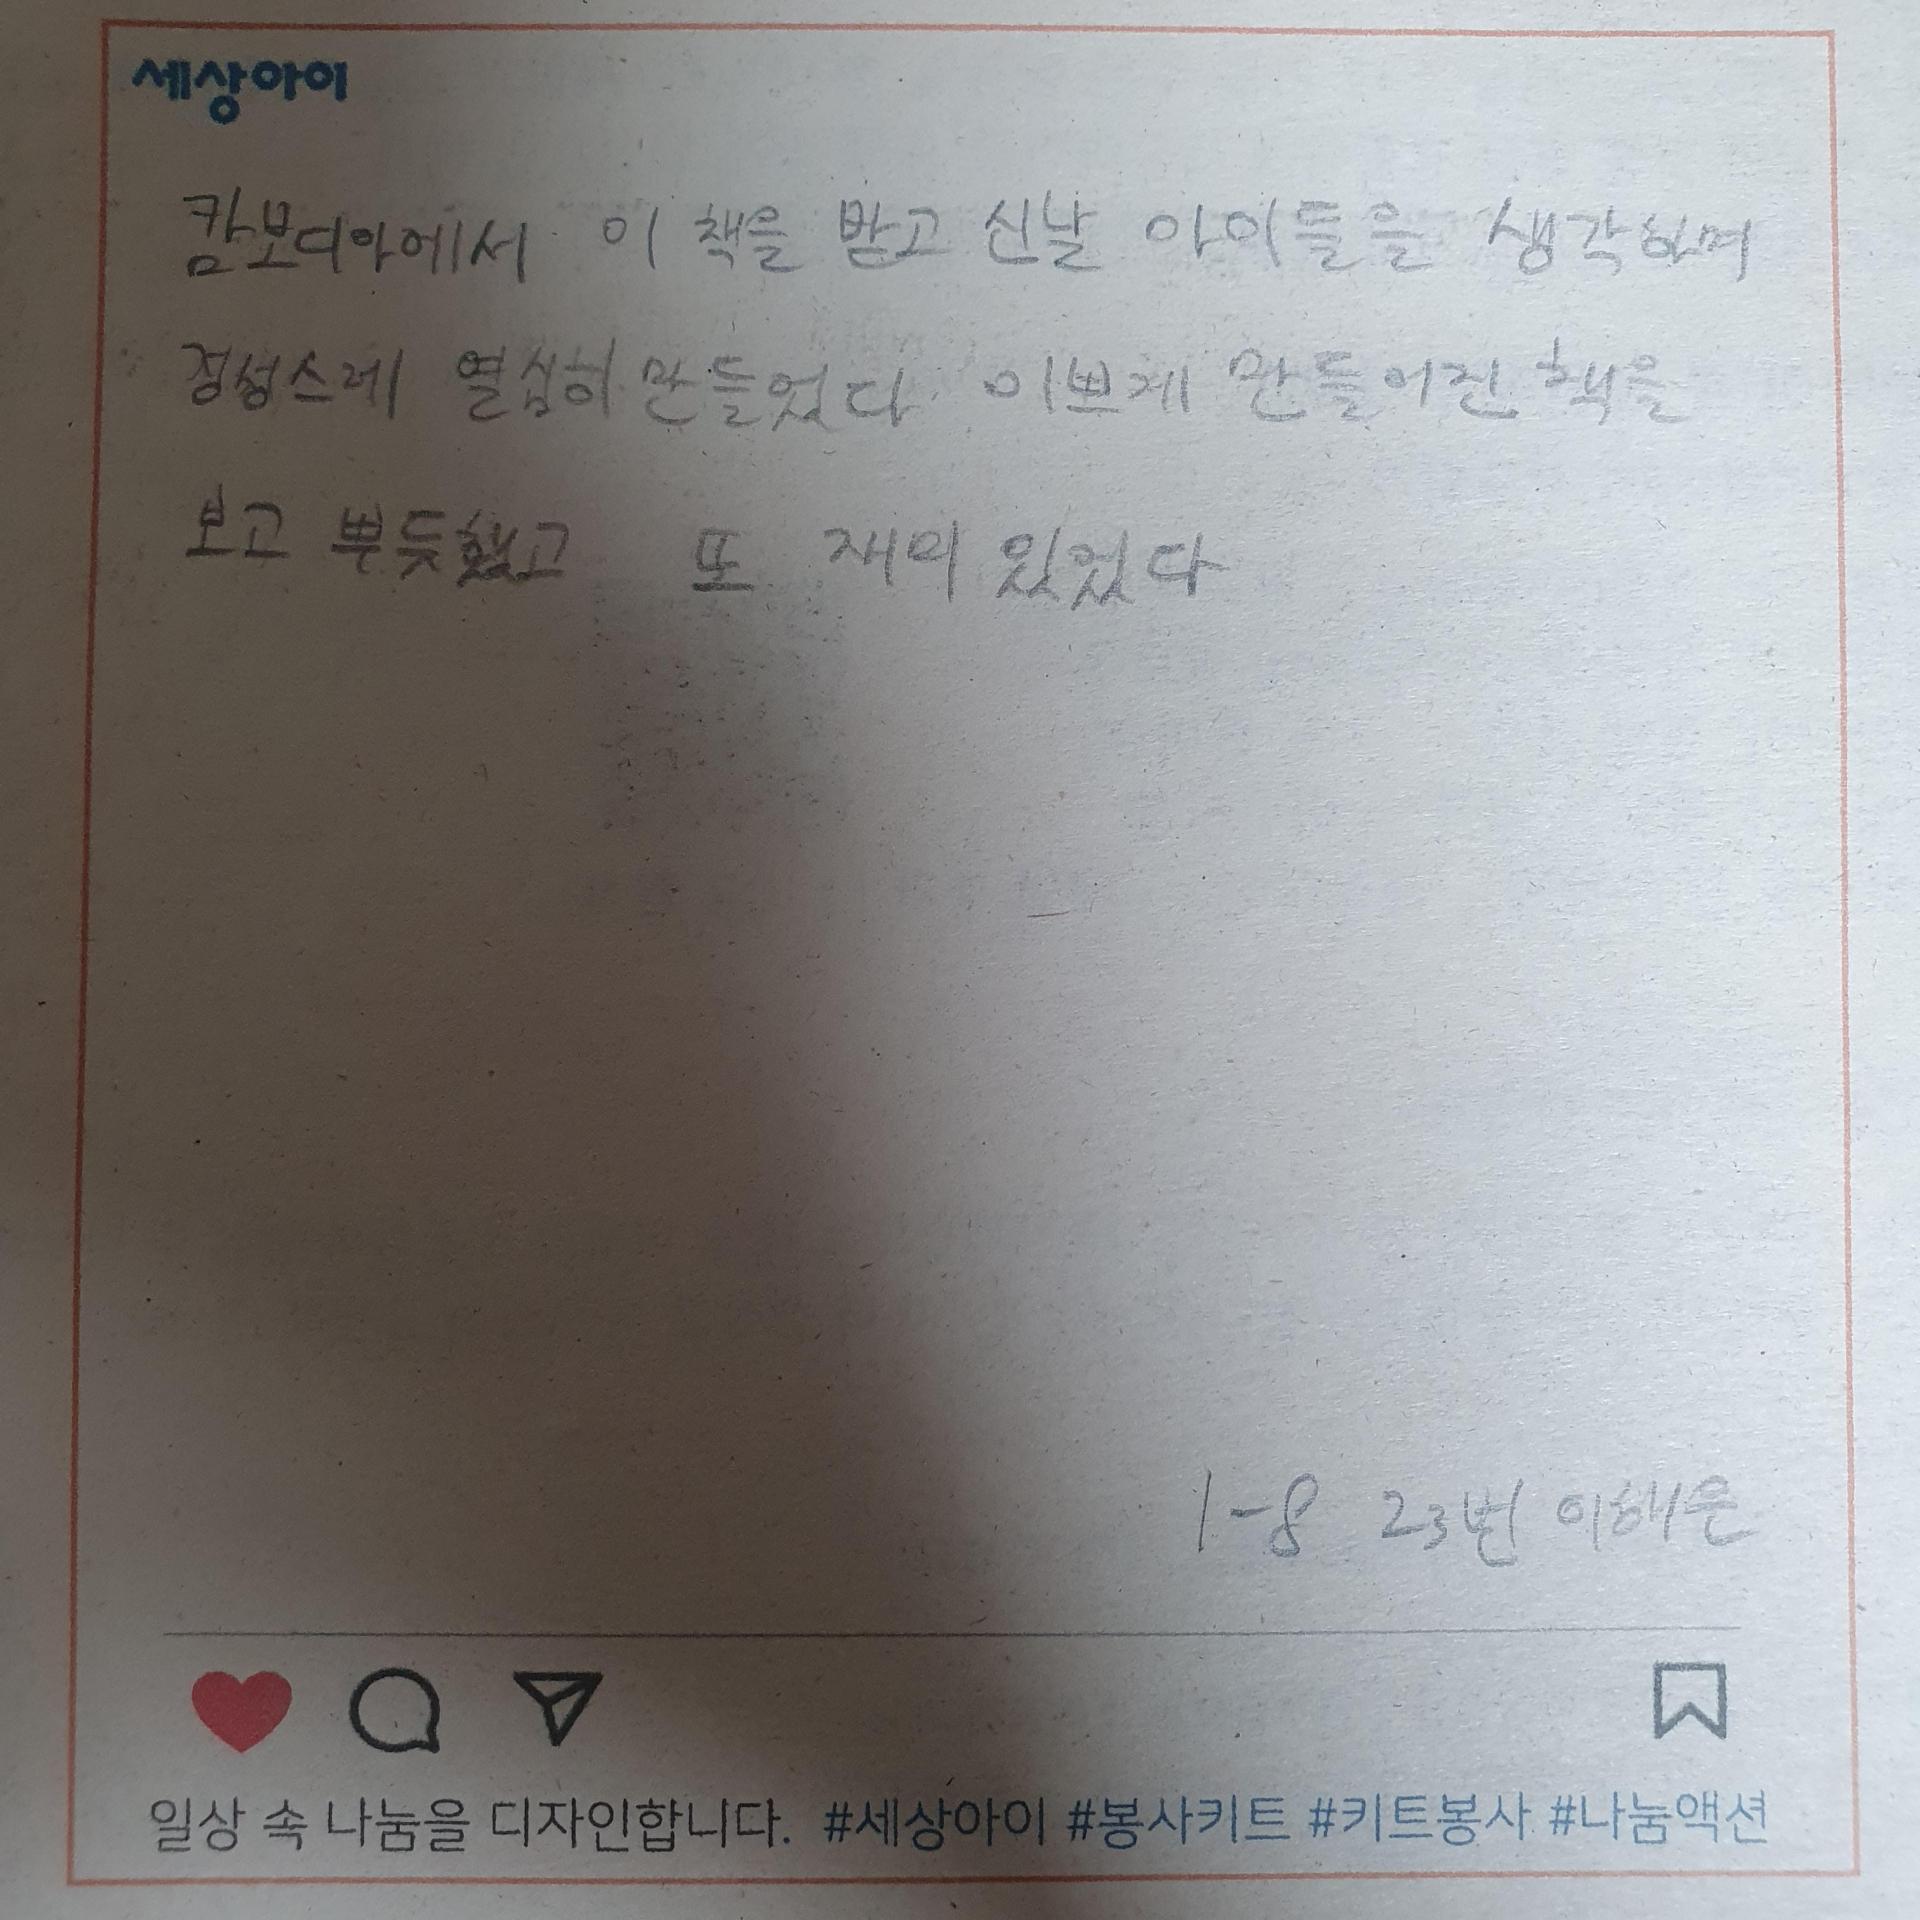 세상아이
캄보디아에서 이 책을 받고 신날 아이들을 생각하며
정성스레 열심히 만들었다 이쁘게 만들어진 책을
보고 뿌듯했고 또 재미 있었다
1-8 23번 이해은
일상 속 나눔을 디자인합니다. #세상아이 #봉사키트 #키트봉사 #나눔액션